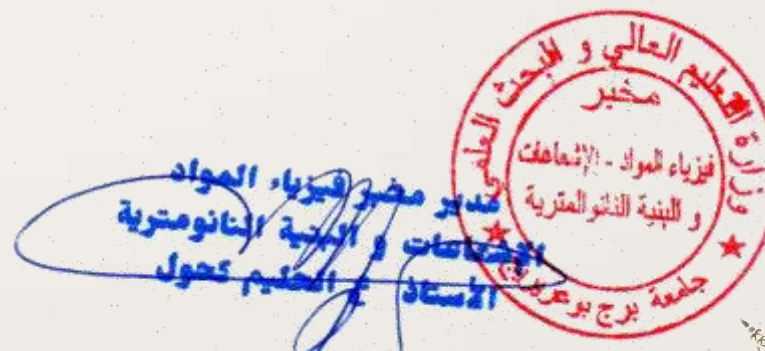 وزارة التعليم العالي و البحث العلمي
مخبر
فيزياء المواد - الإشعاعات
و البنية النانوالمترية
جامعة برج بوعريريج
مدير مخبر فيزياء المواد
الإشعاعات و البنية النانومترية
الأستاذ ع الحليم كحول